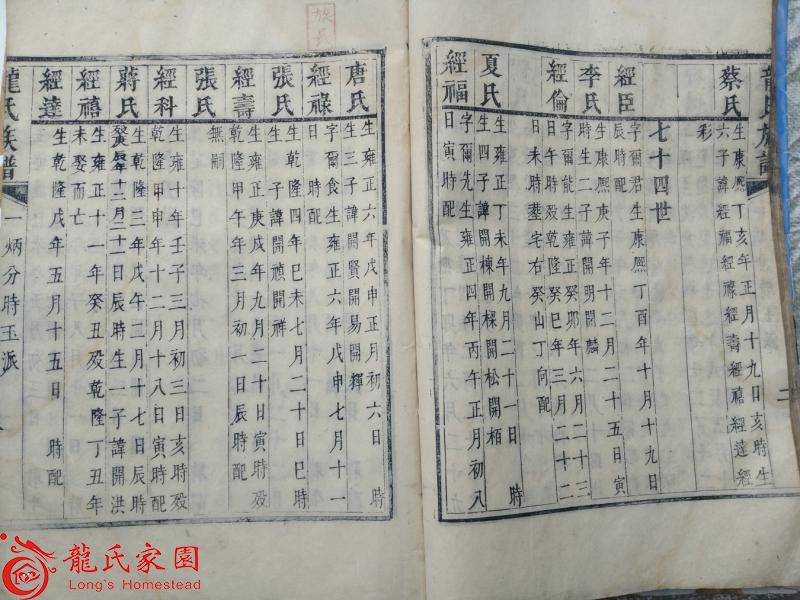 龍氏族譜
二
蔡氏 生康熙丁亥年正月十九日亥時生
六子諱經福經祿經壽經禧經達經
彩
七十四世
經臣 字爾君生康熙丁酉年十月十九日
辰時配
李氏 生康熙庚子年十二月二十五日寅
時生二子諱開明開麟
經倫 字爾能生雍正癸卯年六月二十三
日午時歿乾隆癸巳年三月二十二
日未時塟宅右癸山丁向配
夏氏 生雍正丁未年九月二十一日 時
生四子諱開棟開樑開松開栢
經福 字爾先生雍正四年丙午正月初八
日寅時配
唐氏 生雍正六年戊申正月初六日 時
生三子諱開賢開易開擇
經祿 字爾食生雍正六年戊申七月十一
日 時配
張氏 生乾隆四年己未七月二十日巳時
生 子諱開禎開祥
經壽 生雍正庚戌年九月二十日寅時歿
乾隆甲午年三月初一日辰時配
張氏 無嗣
經科 生雍十年壬子三月初三日亥時歿
乾隆甲申年十二月十八日寅時配
蔣氏 生乾隆三年戊午三月十七日辰時
年十二月二十一日辰時生一子諱開洪
經禧 生雍正十一年癸丑歿乾隆丁丑年
未娶而亡
經達 生乾隆戊年五月十五日 時配
龍氏族譜
一炳分時玉派
族長
龍氏家園
Long's Homestead